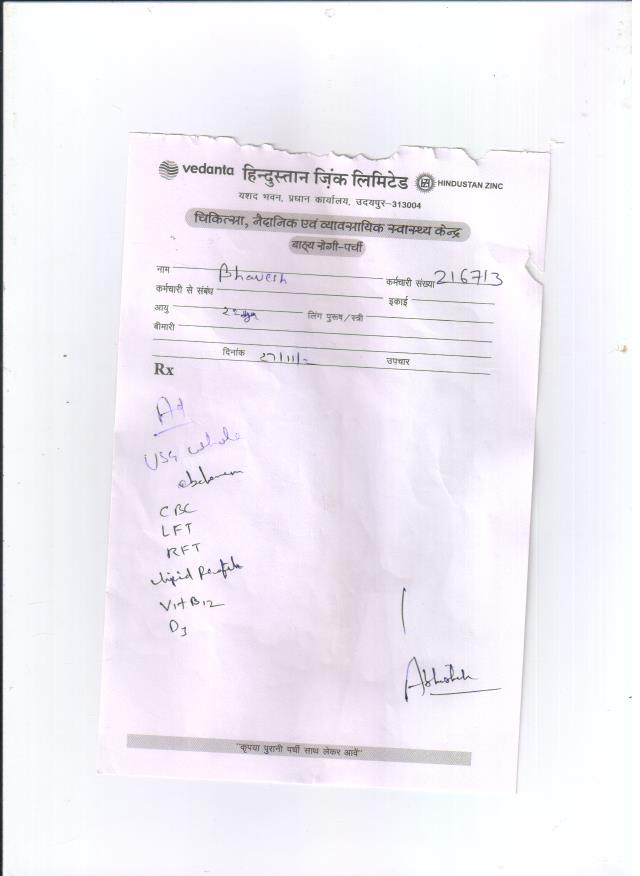 vedanta हिन्दुस्तान ज़िंक लिमिटेड HINDUSTAN ZINC
यशद भवन, प्रधान कार्यालय, उदयपुर-313004
चिकित्सा, नैदानिक एवं व्यावसायिक स्वास्थ्य केन्द्र
बाह्य रोगी-पर्ची
नाम Bhavesh कर्मचारी संख्या 216713
कर्मचारी से संबंध इकाई
आयु लिंग पुरूष/स्त्री
बीमारी
दिनांक 27/11/ उपचार
Rx
USG whole
abdomen
CBC
LFT
RFT
Lipid Profile
Vit B12
D3
Abhishek
"कृपया पुरानी पर्ची साथ लेकर आवें"